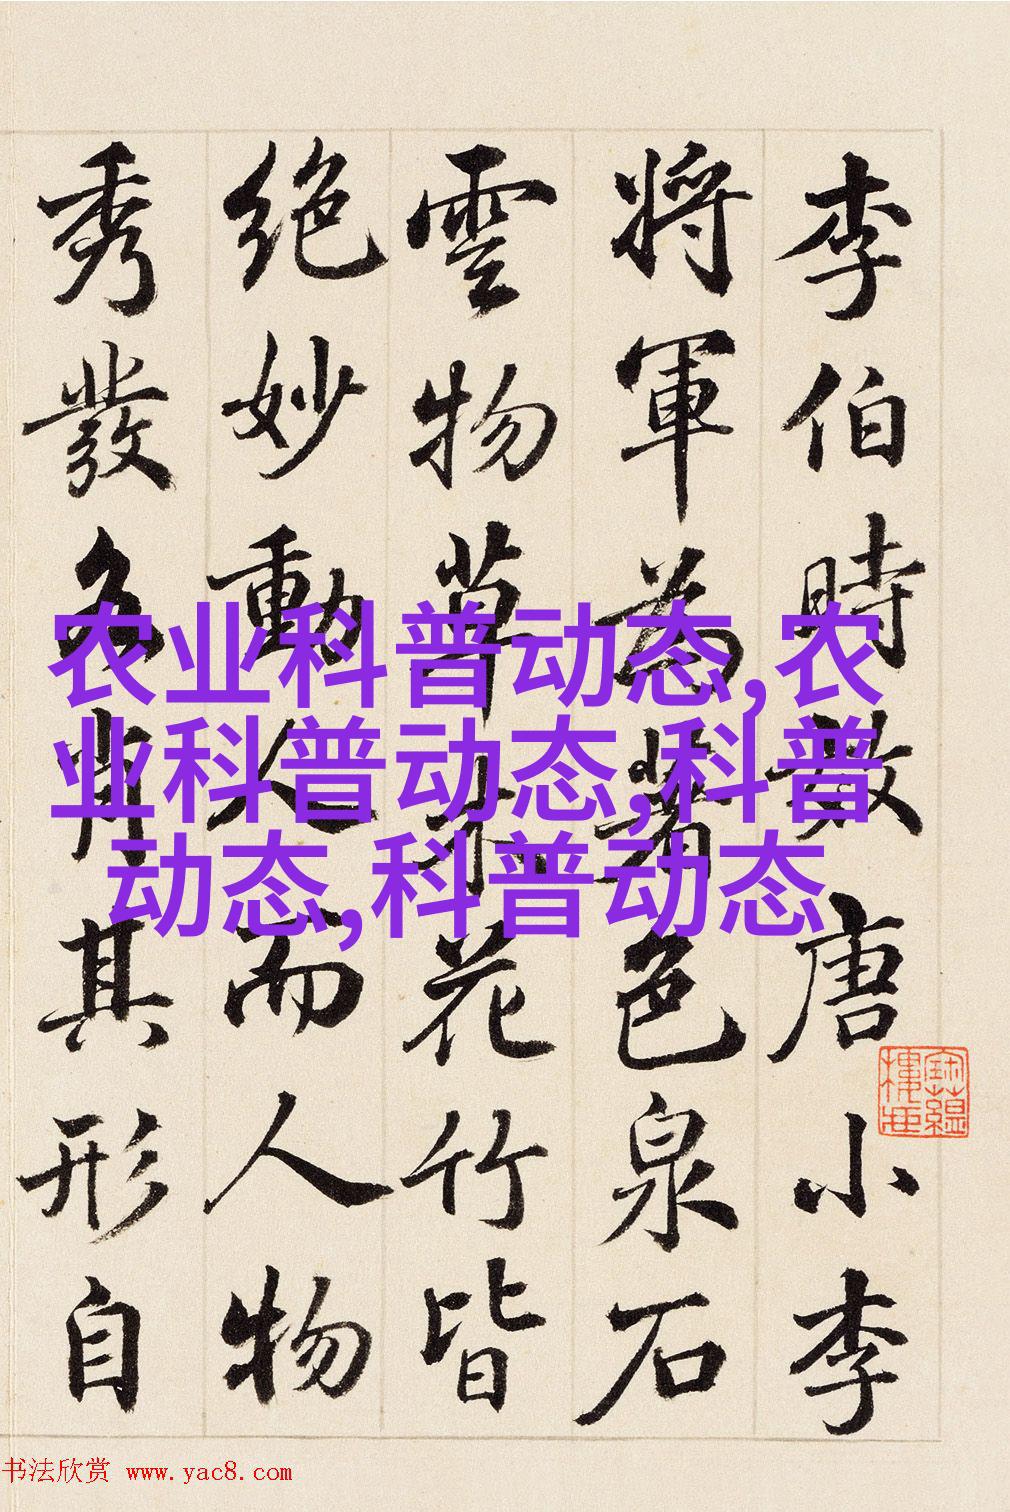 李伯時效唐小李
將軍為著色泉石
雲物草木花竹皆
絶妙動人而人物
秀發各肖其形自
农业科普动态,农
业科普动态,科普
动态,科普动态
书法欣赏 www.yac8.com